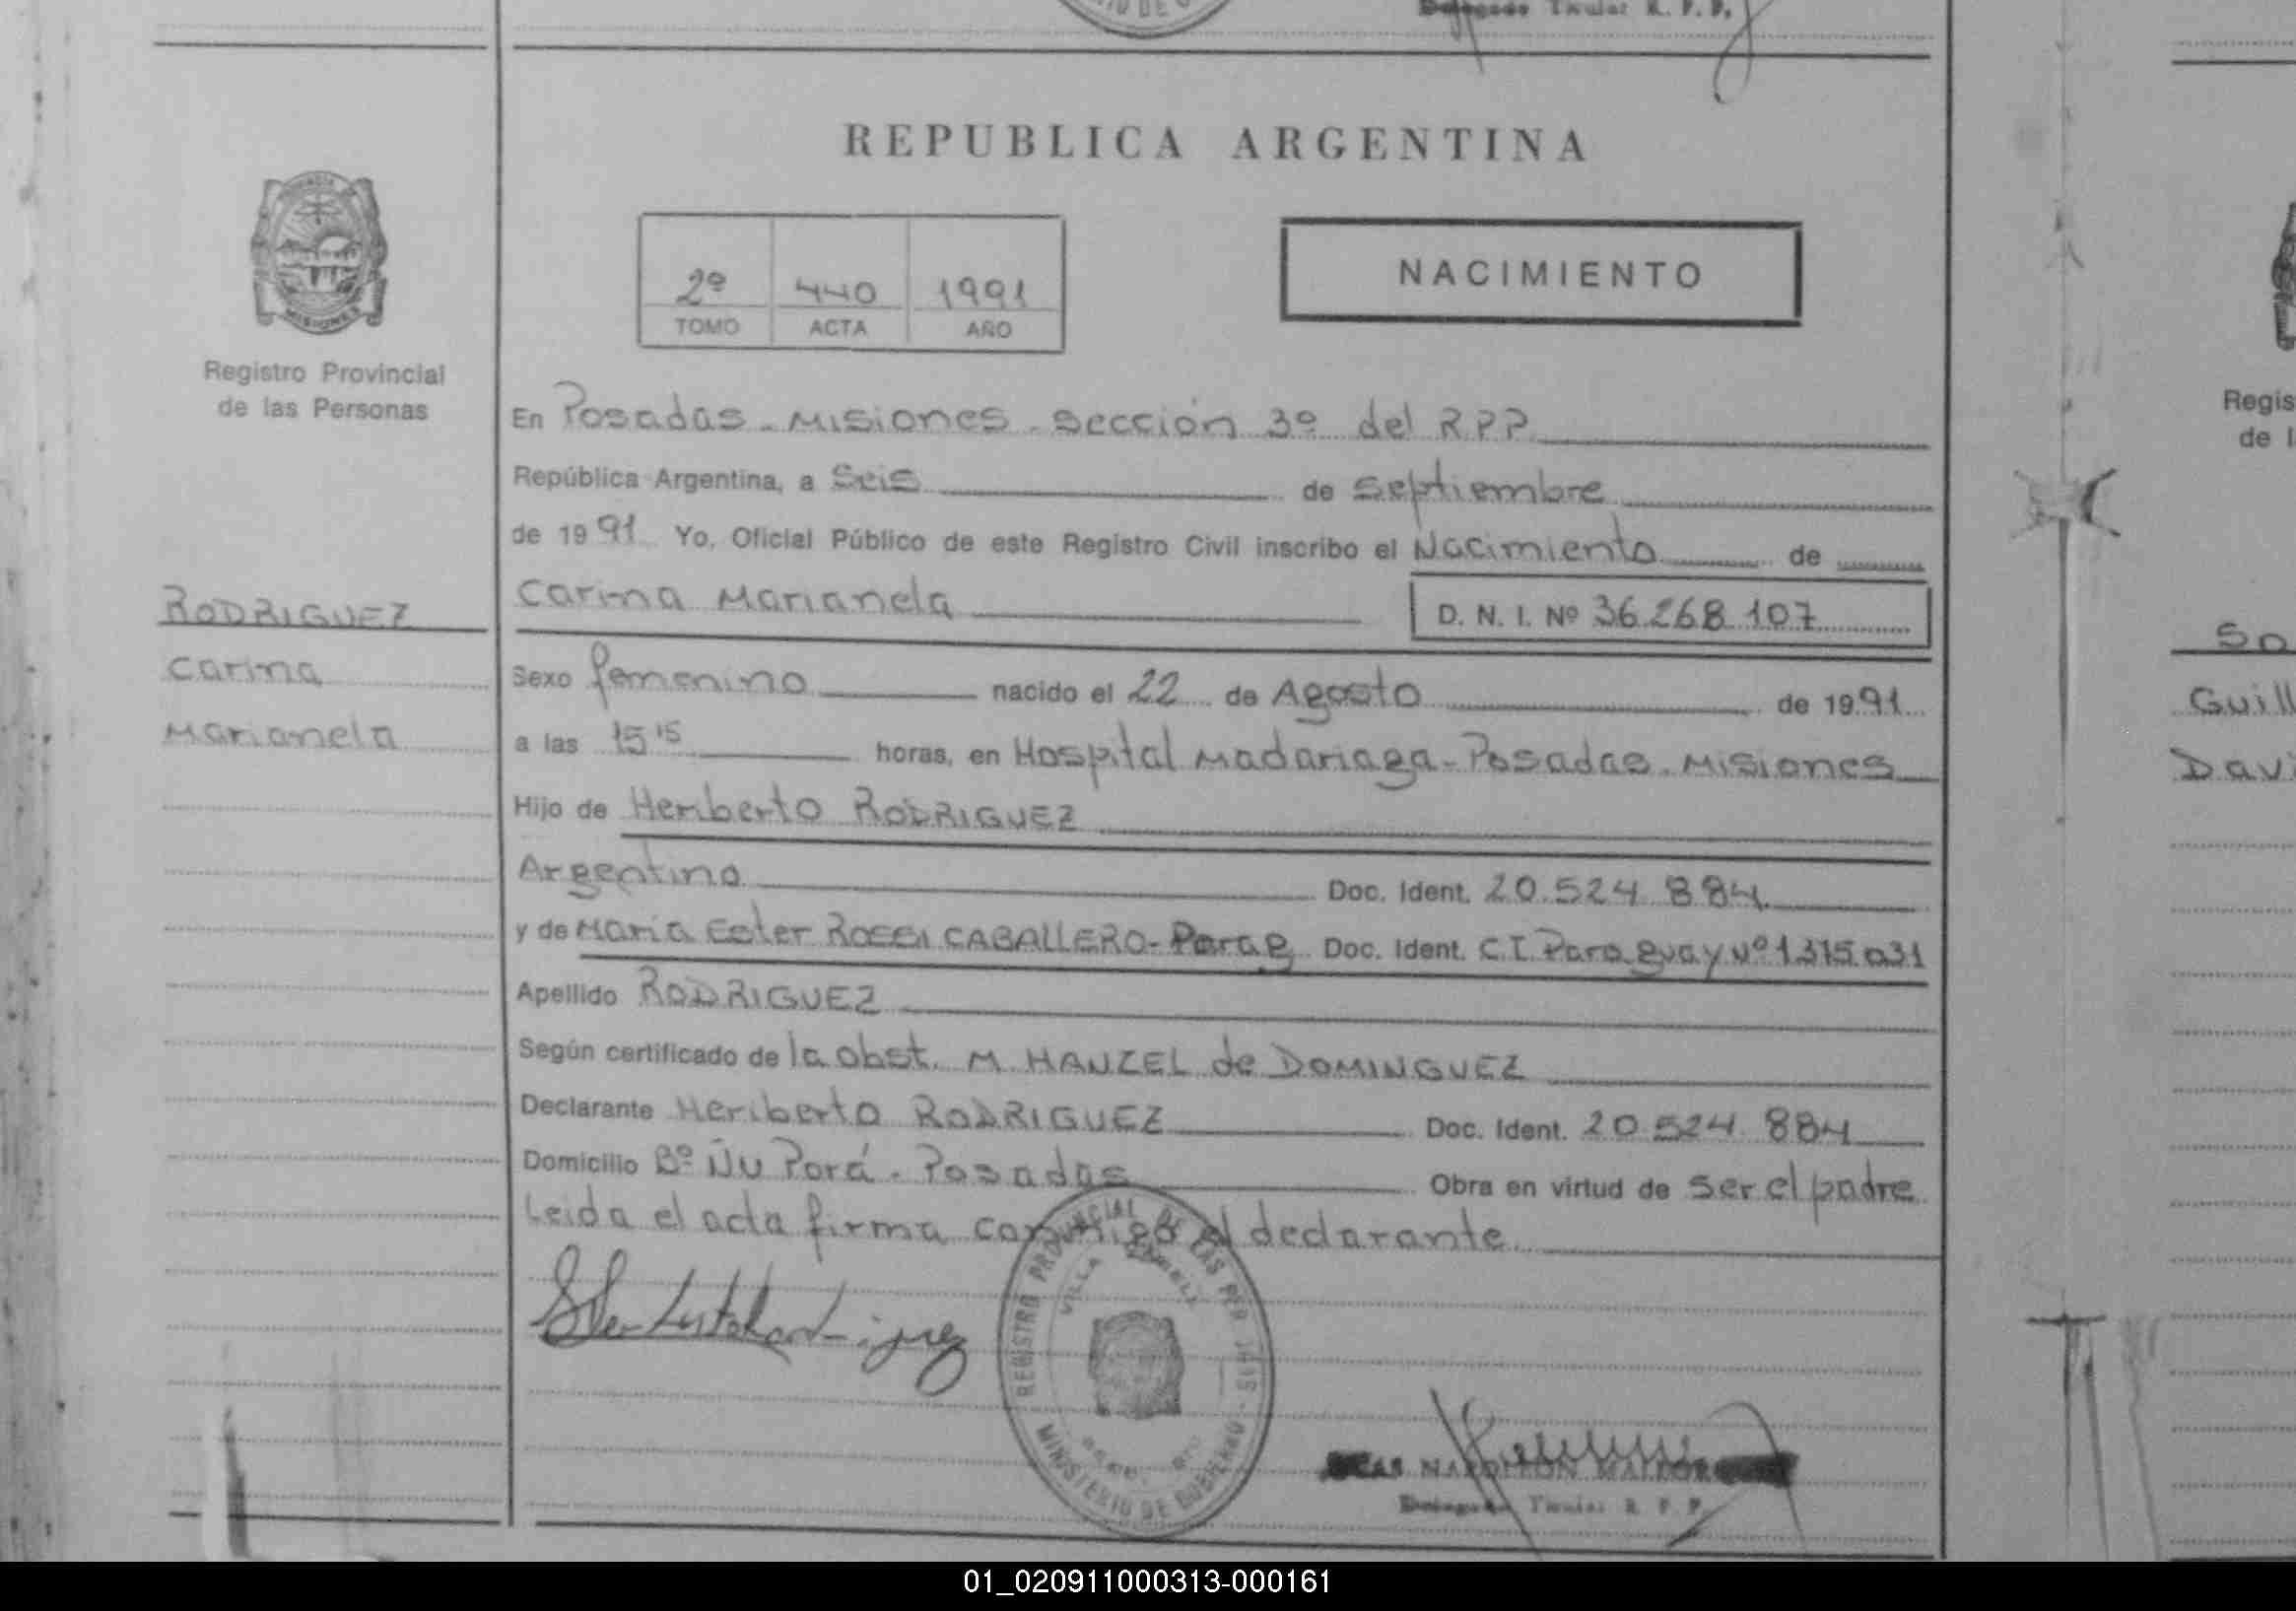 Delegado Titular R. P. P.
REPUBLICA ARGENTINA
MISIONES
Registro Provincial
de las Personas
2º 440 1991
TOMO ACTA AÑO
NACIMIENTO
En Posadas - Misiones - Sección 3º del R.P.P.
República Argentina, a Seis de Septiembre
de 1991 Yo, Oficial Público de este Registro Civil inscribo el Nacimiento de
Carina Marianela D. N. I. Nº 36.268.107
RODRIGUEZ
Carina
Marianela
Sexo femenino nacido el 22 de Agosto de 1991
a las 15 15 horas, en Hospital Madariaga - Posadas - Misiones
Hijo de Heriberto RODRIGUEZ
Argentino Doc. Ident. 20.524.884
y de María Ester ROSSI CABALLERO - Parag Doc. Ident. C.I. Paraguay Nº 1.315.031
Apellido RODRIGUEZ
Según certificado de la obst. M. HANZEL de DOMINGUEZ
Declarante Heriberto RODRIGUEZ Doc. Ident. 20.524.884
Domicilio Bº Ñu Porá - Posadas Obra en virtud de ser el padre
Leida el acta firma conmigo el declarante
REGISTRO PROVINCIAL DE LAS PER
VILLA
MINISTERIO DE GOBIERNO
NAPOLEON
Delegado Titular R. P. P.
Regis
de l
So
Guill
Davi
01_020911000313-000161